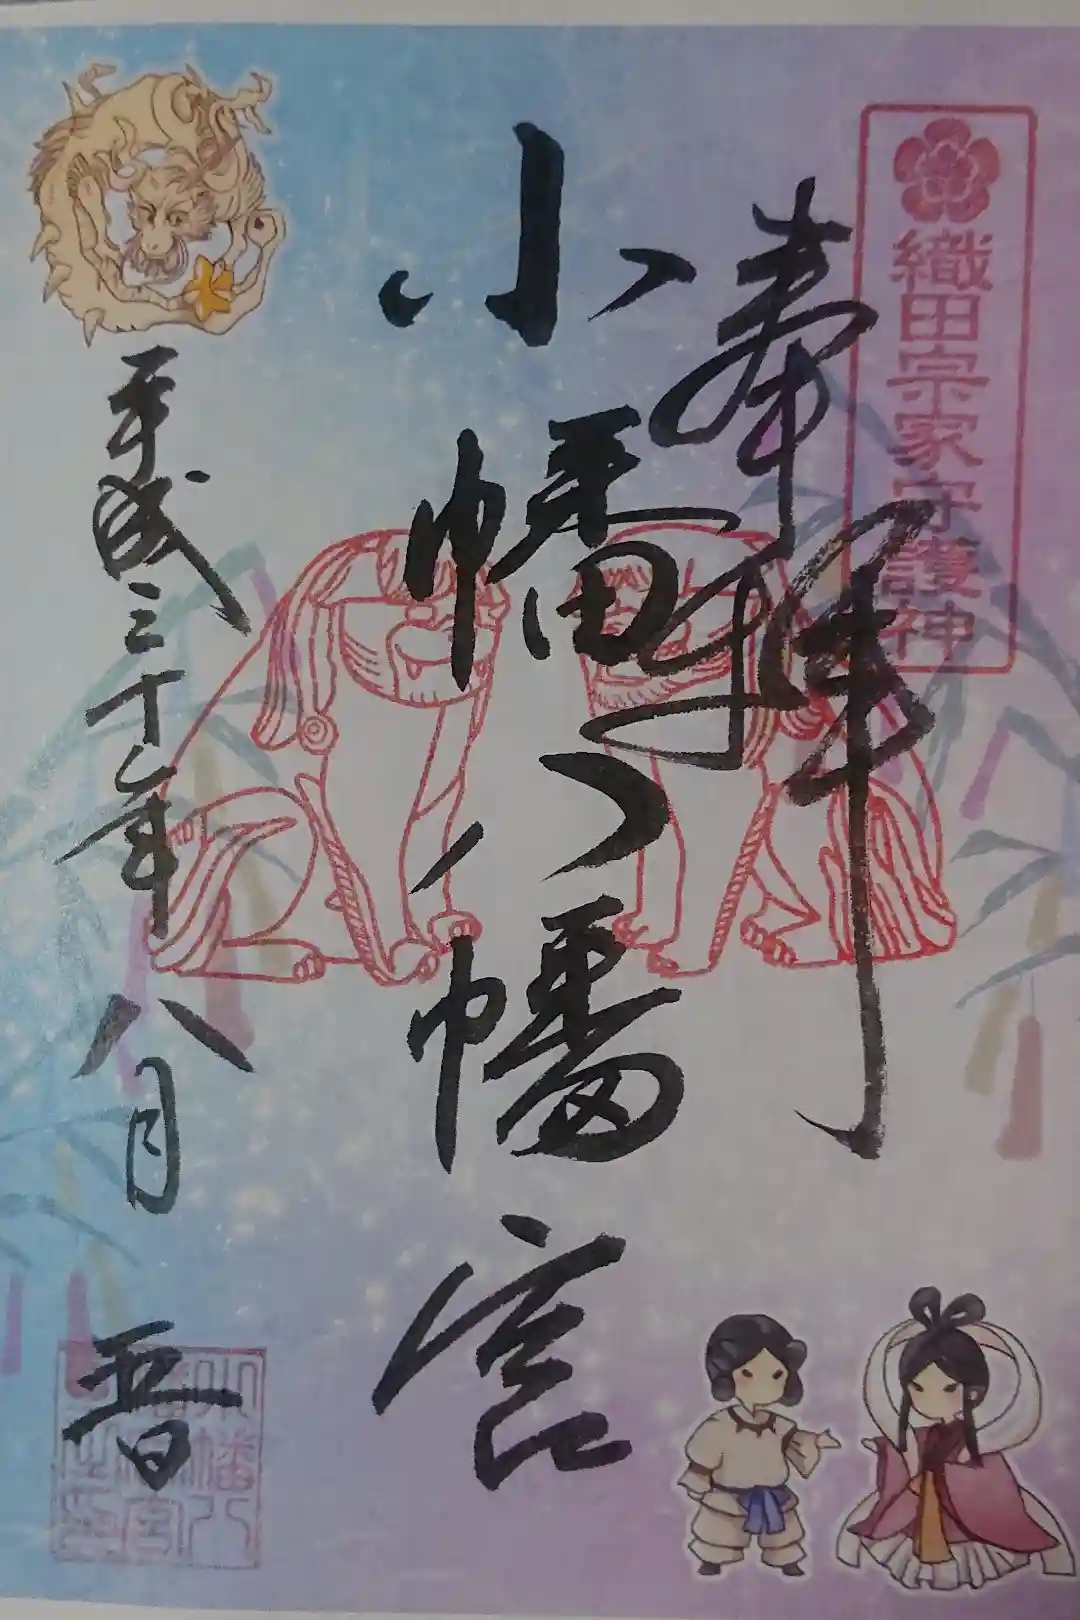 織田宗家守護神
奉拝
小幡八幡宮
平成三十年八月五日